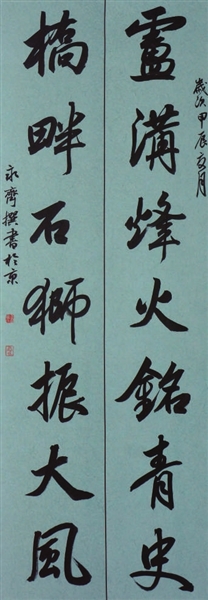 歲次甲辰月
盧溝烽火銘青史
橋畔石獅振大風
永齊撰書於京